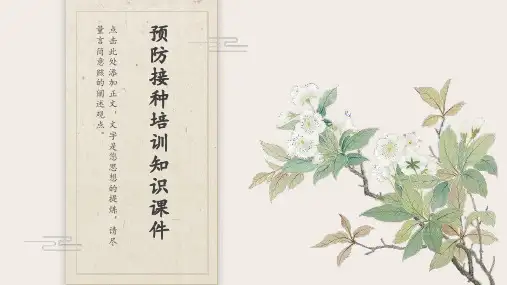 预防接种培训知识课件
点击此处添加正文，文字是您思想的提炼，请尽
量言简意赅的阐述观点。